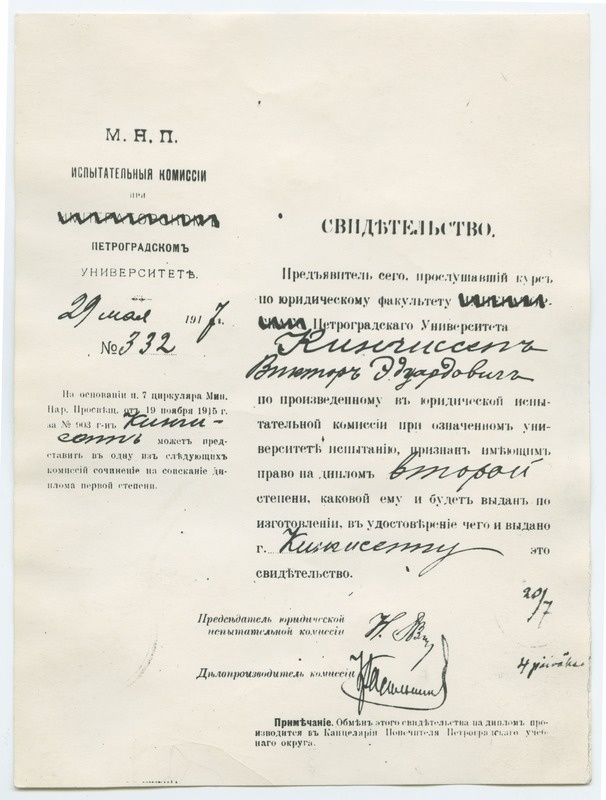 М. Н. П.
ИСПЫТАТЕЛЬНЫЯ КОМИССІИ
при
ПЕТРОГРАДСКОМЪ
УНИВЕРСИТЕТѢ.
29 мая 1917 г.
№ 332
На основаніи п. 7 циркуляра Мин.
Нар. Просвѣщ. отъ 19 ноября 1915 г.
за № 903 г-нъ Кинги-
сеппъ можетъ пред-
ставить въ одну изъ слѣдующихъ
комиссій сочиненіе на соисканіе ди-
плома первой степени.
СВИДѢТЕЛЬСТВО.
Предъявитель сего, прослушавшій курсъ
по юридическому факультету
Петроградскаго Университета
Кингиссепъ
Викторъ Эдуардовичъ
по произведенному въ юридической испы-
тательной комиссіи при означенномъ уни-
верситетѣ испытанію, признанъ имѣющимъ
право на дипломъ второй
степени, каковой ему и будетъ выданъ по
изготовленіи, въ удостовѣреніе чего и выдано
г. Кингисеппу это
свидѣтельство.
20/7
Предсѣдатель юридической
испытательной комиссіи
4 päeval
Дѣлопроизводитель комиссіи
Примѣчаніе. Обмѣнъ этого свидѣтельства на дипломъ про-
изводится въ Канцеляріи Попечителя Петроградскаго учеб-
наго округа.